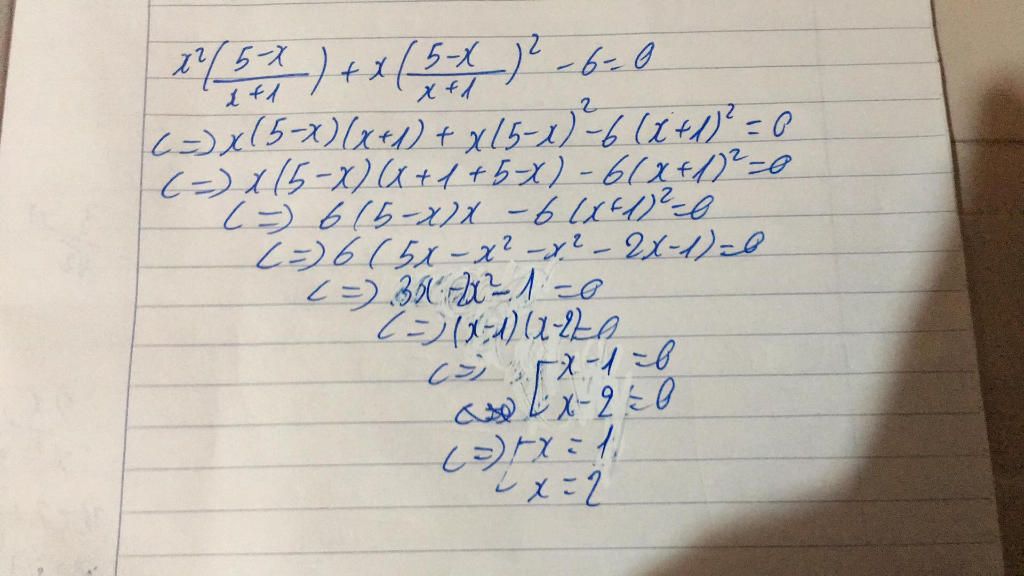 x²(5-x/x+1) + x(5-x/x+1)² - 6 = 0
(=) x(5-x)(x+1) + x(5-x)² - 6(x+1)² = 0
(=) x(5-x)(x+1+5-x) - 6(x+1)² = 0
(=) 6(5-x)x - 6(x+1)² = 0
(=) 6(5x - x² - x² - 2x - 1) = 0
(=) 3x - 2x² - 1 = 0
(=) (x-1)(x-2) = 0
(=) [x-1 = 0
x-2 = 0
(=) [x = 1
x = 2